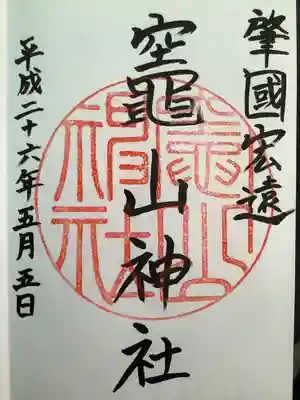 肇國宏遠
竈山神社
平成二十六年五月五日
竈山
神社